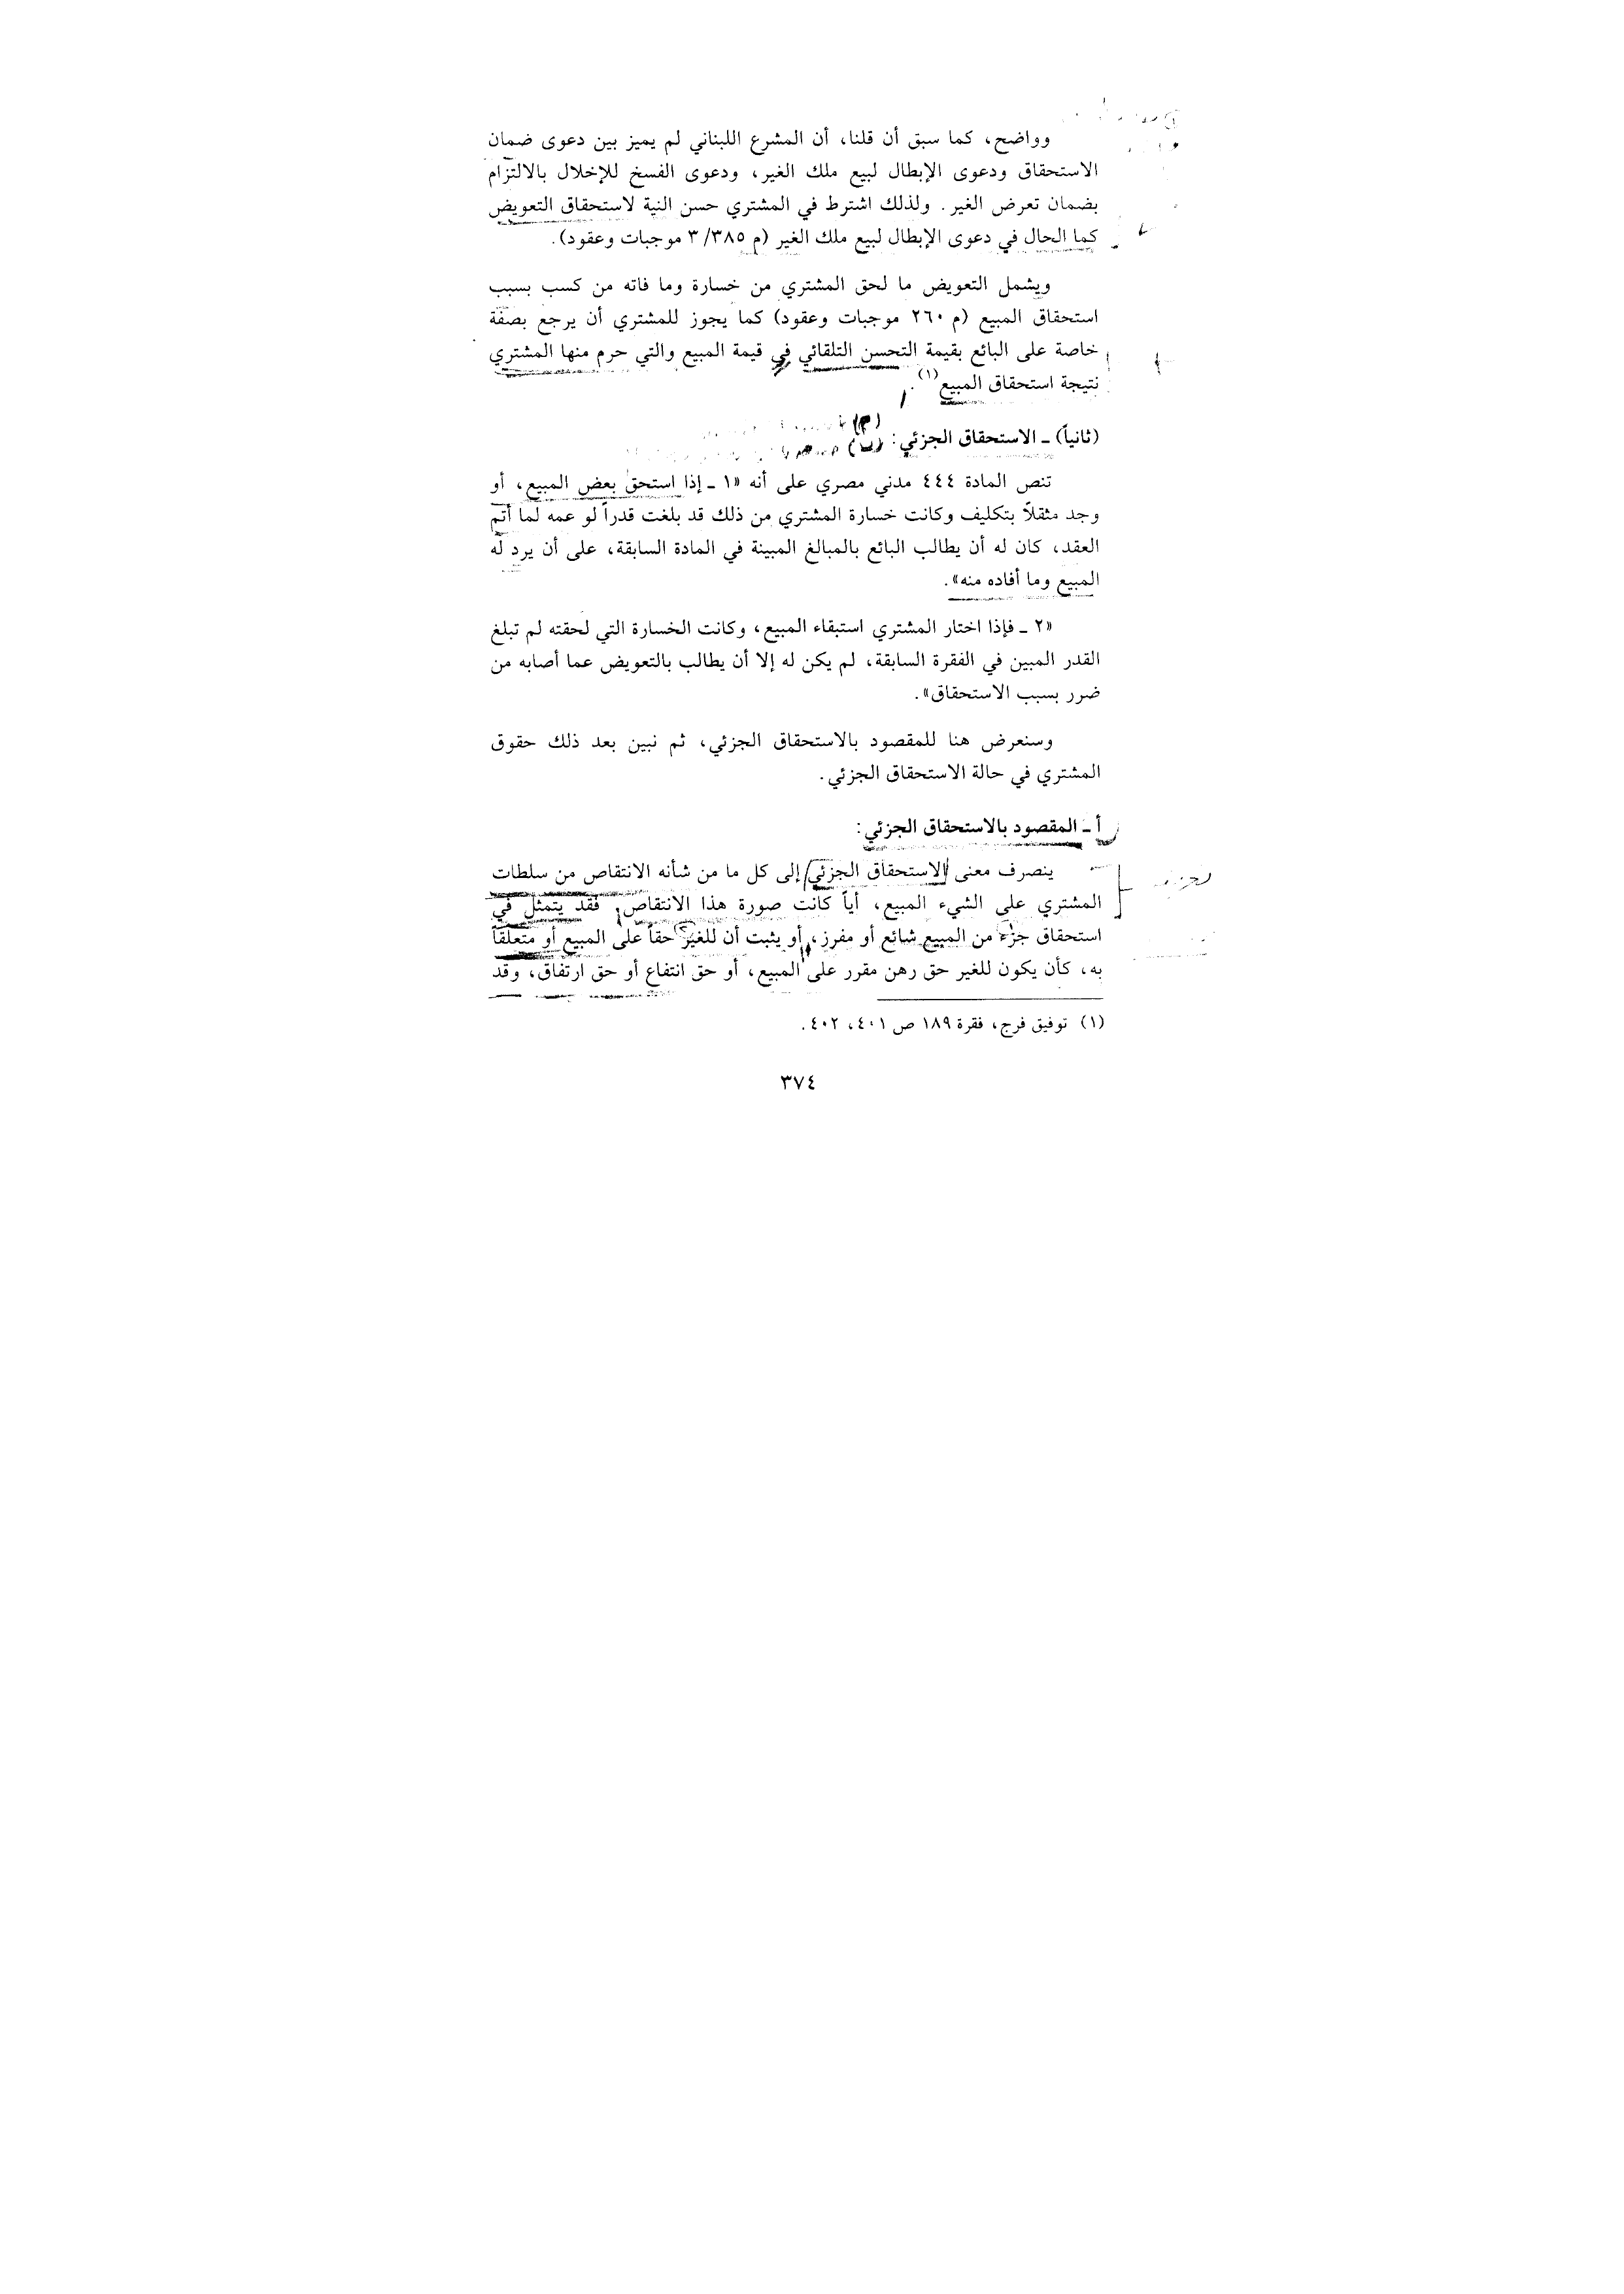 وواضح، كما سبق أن قلنا، أن المشرع اللبناني لم يميز بين دعوى ضمان
الاستحقاق ودعوى الإبطال لبيع ملك الغير، ودعوى الفسخ للإخلال بالالتزام
بضمان تعرض الغير. ولذلك اشترط في المشتري حسن النية لاستحقاق التعويض
كما الحال في دعوى الإبطال لبيع ملك الغير (م ٣٨٥/ ٣ موجبات وعقود).
ويشمل التعويض ما لحق المشتري من خسارة وما فاته من كسب بسبب
استحقاق المبيع (م ٢٦٠ موجبات وعقود) كما يجوز للمشتري أن يرجع بصفة
خاصة على البائع بقيمة التحسن التلقائي في قيمة المبيع والتي حرم منها المشتري
نتيجة استحقاق المبيع(١).
(ثانياً) ـ الاستحقاق الجزئي:
تنص المادة ٤٤٤ مدني مصري على أنه «١ ـ إذا استحق بعض المبيع، أو
وجد مثقلاً بتكليف وكانت خسارة المشتري من ذلك قد بلغت قدراً لو عمه لما أتم
العقد، كان له أن يطالب البائع بالمبالغ المبينة في المادة السابقة، على أن يرد له
المبيع وما أفاده منه».
«٢ ـ فإذا اختار المشتري استبقاء المبيع، وكانت الخسارة التي لحقته لم تبلغ
القدر المبين في الفقرة السابقة، لم يكن له إلا أن يطالب بالتعويض عما أصابه من
ضرر بسبب الاستحقاق».
وسنعرض هنا للمقصود بالاستحقاق الجزئي، ثم نبين بعد ذلك حقوق
المشتري في حالة الاستحقاق الجزئي.
أ ـ المقصود بالاستحقاق الجزئي:
ينصرف معنى الاستحقاق الجزئي إلى كل ما من شأنه الانتقاص من سلطات
المشتري على الشيء المبيع، أياً كانت صورة هذا الانتقاص. فقد يتمثل في
استحقاق جزء من المبيع شائع أو مفرز، أو يثبت أن للغير حقاً على المبيع أو متعلقاً
به، كأن يكون للغير حق رهن مقرر على المبيع، أو حق انتفاع أو حق ارتفاق، وقد
(١) توفيق فرج، فقرة ١٨٩ ص ٤٠١، ٤٠٢.
٣٧٤